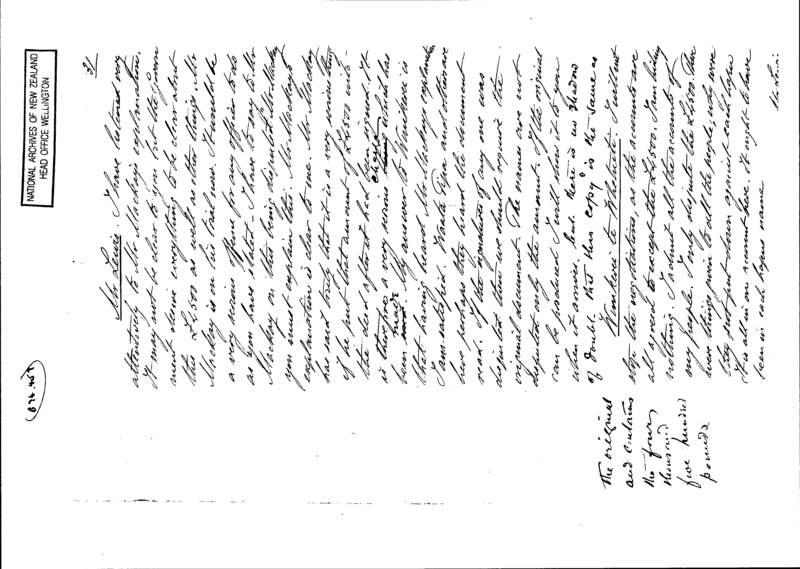 NATIONAL ARCHIVES OF NEW ZEALAND
HEAD OFFICE WELLINGTON
31
Mr Lewis. I have listened very
attentively to Mr Mackay's explanation.
It may not be clear to you but the Govern
ment desire everything to be clear about
the £4500 as well as other things. Mr
Mackay is on his trial now. It would be
a very serious offence for any officer to do
as you have stated. I have to say to Mr
Mackay on this being disputed Mr Mackay
you must explain this. Mr Mackay's
explanation is clear to me. Mr Mackay
has said truly that it is a very serious thing
if he put that amount of £4500 into
the deed after it had been signed. It
is therefore a very serious charge that has
been made. My answer to Wanikere is
that having heard Mr Mackay's explanation
I am satisfied. Karta Epa and others are
here perhaps they heard the document
read. If the signatures of any one was
disputed then we should require the
original document. The names are not
disputed only the amount. If the original
can be produced I will shew it to you
when it arrives but there is no shadow
of doubt that this copy is the same as
The original
and contains
the four
thousand
five hundred
pounds
to Whatiti. I will not
stop the negotiations, as the accounts are
all agreed to except the £4,500. I am hiding
nothing. I admit all the accounts of
my people. I only dispute the £4,500. There
were things given to all the people, who were
they not put down against each hapu
It is all in one account here. It ought to have
been in each hapus name
(B76.457)